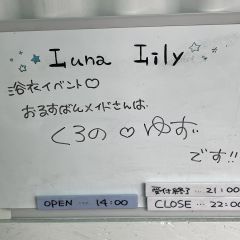 Luna Lily
浴衣イベント♡
おるすばんメイドさんは、
くろの♡ゆず
です!!
受付終了 … 21:00
OPEN … 14:00
CLOSE … 22:00